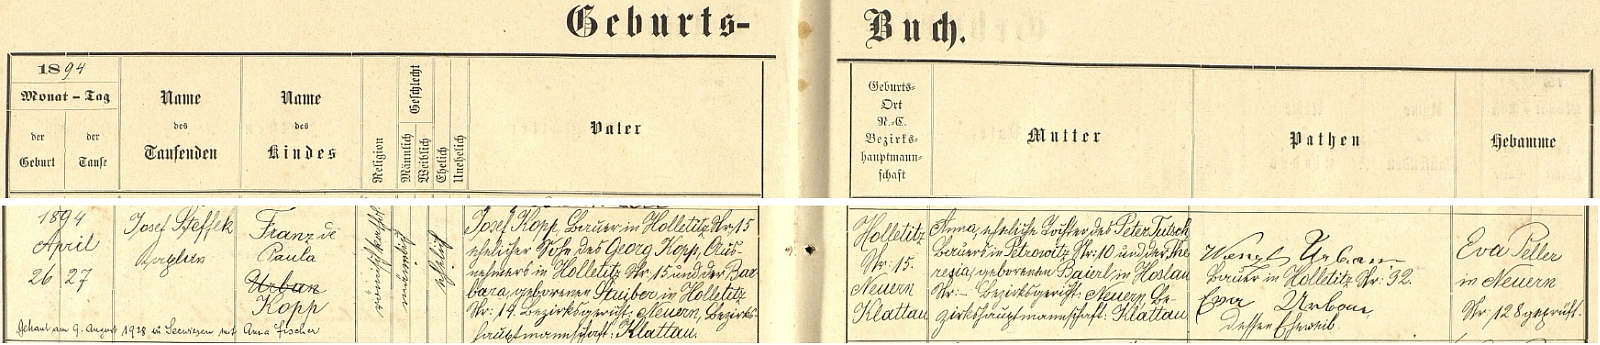 Geburts-
Buch.
1894
Monat - Tag
der Geburt
der Taufe
Name des Taufenden
Name des Kindes
Religion
Geschlecht
Männlich
Weiblich
Ehelich
Unehelich
Vater
Geburts-
Ort
N.-C.
Bezirks-
hauptmann-
schaft
Mutter
Pathen
Hebamme
1894
April
26 27
Josef Steffek
Kaplan
Franz de
Paula
Urban
Kopp
römischkathol.
männlich
ehelich
Josef Kopp, Bauer in Holletitz Nr. 15
ehelicher Sohn des Georg Kopp, Aus-
nehmers in Holletitz Nr. 15 und der Bar-
bara, geborenen Stauber, in Holletitz
Nr. 19. Bezirksgericht: Neuern, Bezirks-
hauptmannschaft: Klattau.
Getraut am 9. August 1928 in Seewiesen mit Anna Fischer
Holletitz
Nr. 15.
Neuern
Klattau
Anna, eheliche Tochter des Peter
Bauers in Petrowitz Nr. 10 und der The-
resia, geborenen Baierl in Hostau
Nr. – Bezirksgericht: Neuern, Be-
zirkshauptmannschaft: Klattau
Wenzl Urban
Bauer in Holletitz Nr. 32.
Eva Urban,
dessen Eheweib.
Eva Peller
in Neuern
Nr. 128 geprüft.